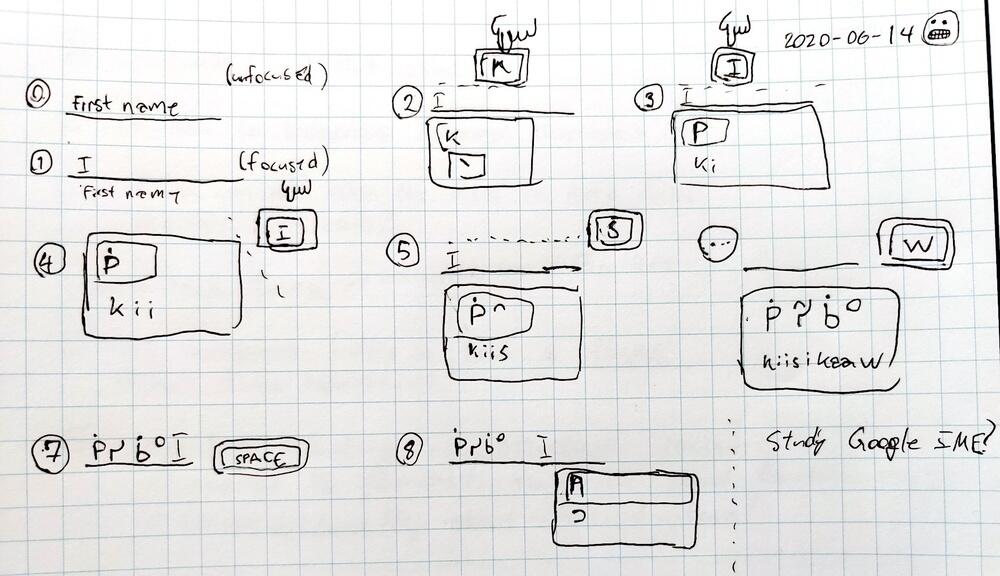 2020-06-14
0 First name (unfocused)
1 I (focused)
First name
2 K
I
K
ᐠ
3 I
I
ᑭ
ki
4 I
ᑮ
kii
5 S
I
ᑮᐢ
kiis
... W
ᑮᓯᑳᐤ
kiisikaaw
7 ᑮᓯᑳᐤ I SPACE
8 ᑮᓯᑳᐤ I
A
ᑐ
Study Google IME?